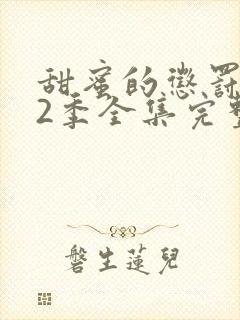 甜蜜的懲罰
2季全集完整
磐生蓮兒